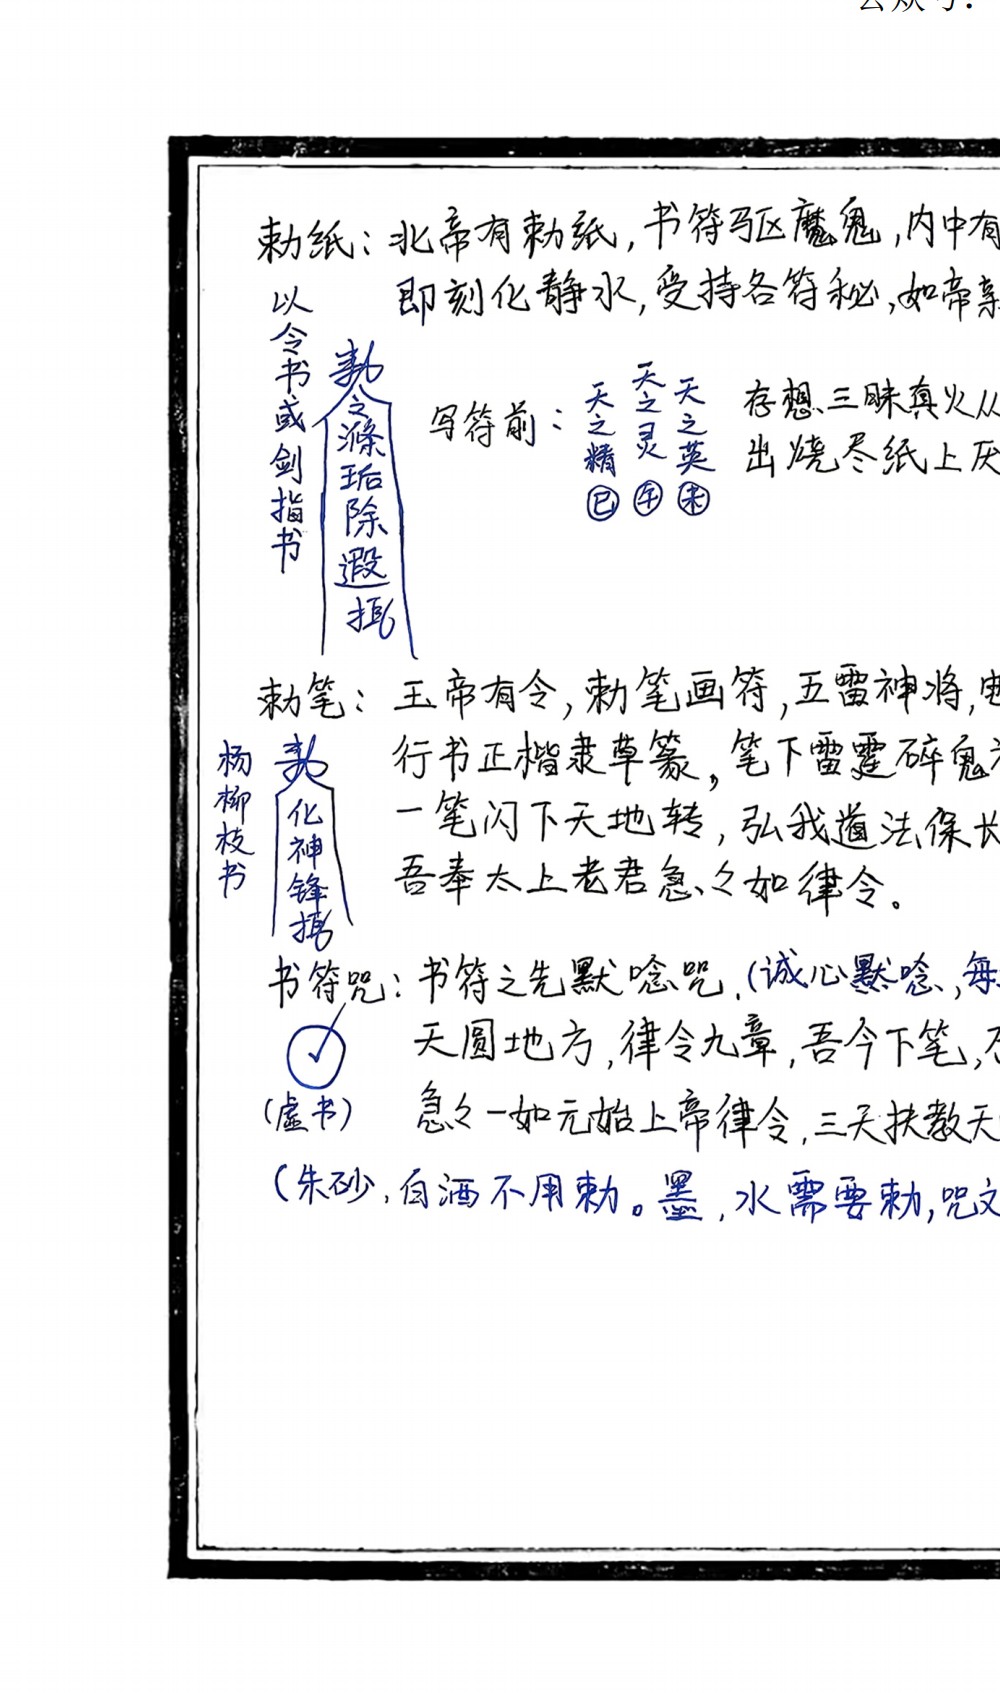 公众号：
勅纸：北帝有勅纸，书符驱魔鬼，内中有
即刻化静水，受持各符秘，如帝亲
以令书或剑指书
勅令滌垢除遐
写符前：
天之精巳
天之灵午
天之英未
存想三昧真火从
出烧尽纸上厌
勅笔：玉帝有令，勅笔画符，五雷神将，电
杨柳枝书
勅化神锋
行书正楷隶草篆，笔下雷霆碎鬼
一笔闪下天地转，弘我道法保长
吾奉太上老君急々如律令。
书符咒：书符之先默唸咒，(诚心默唸，每
天圆地方，律令九章，吾今下笔，
(虚书)
急々一如元始上帝律令，三天扶教天
(朱砂，白酒不用勅。墨，水需要勅，咒文